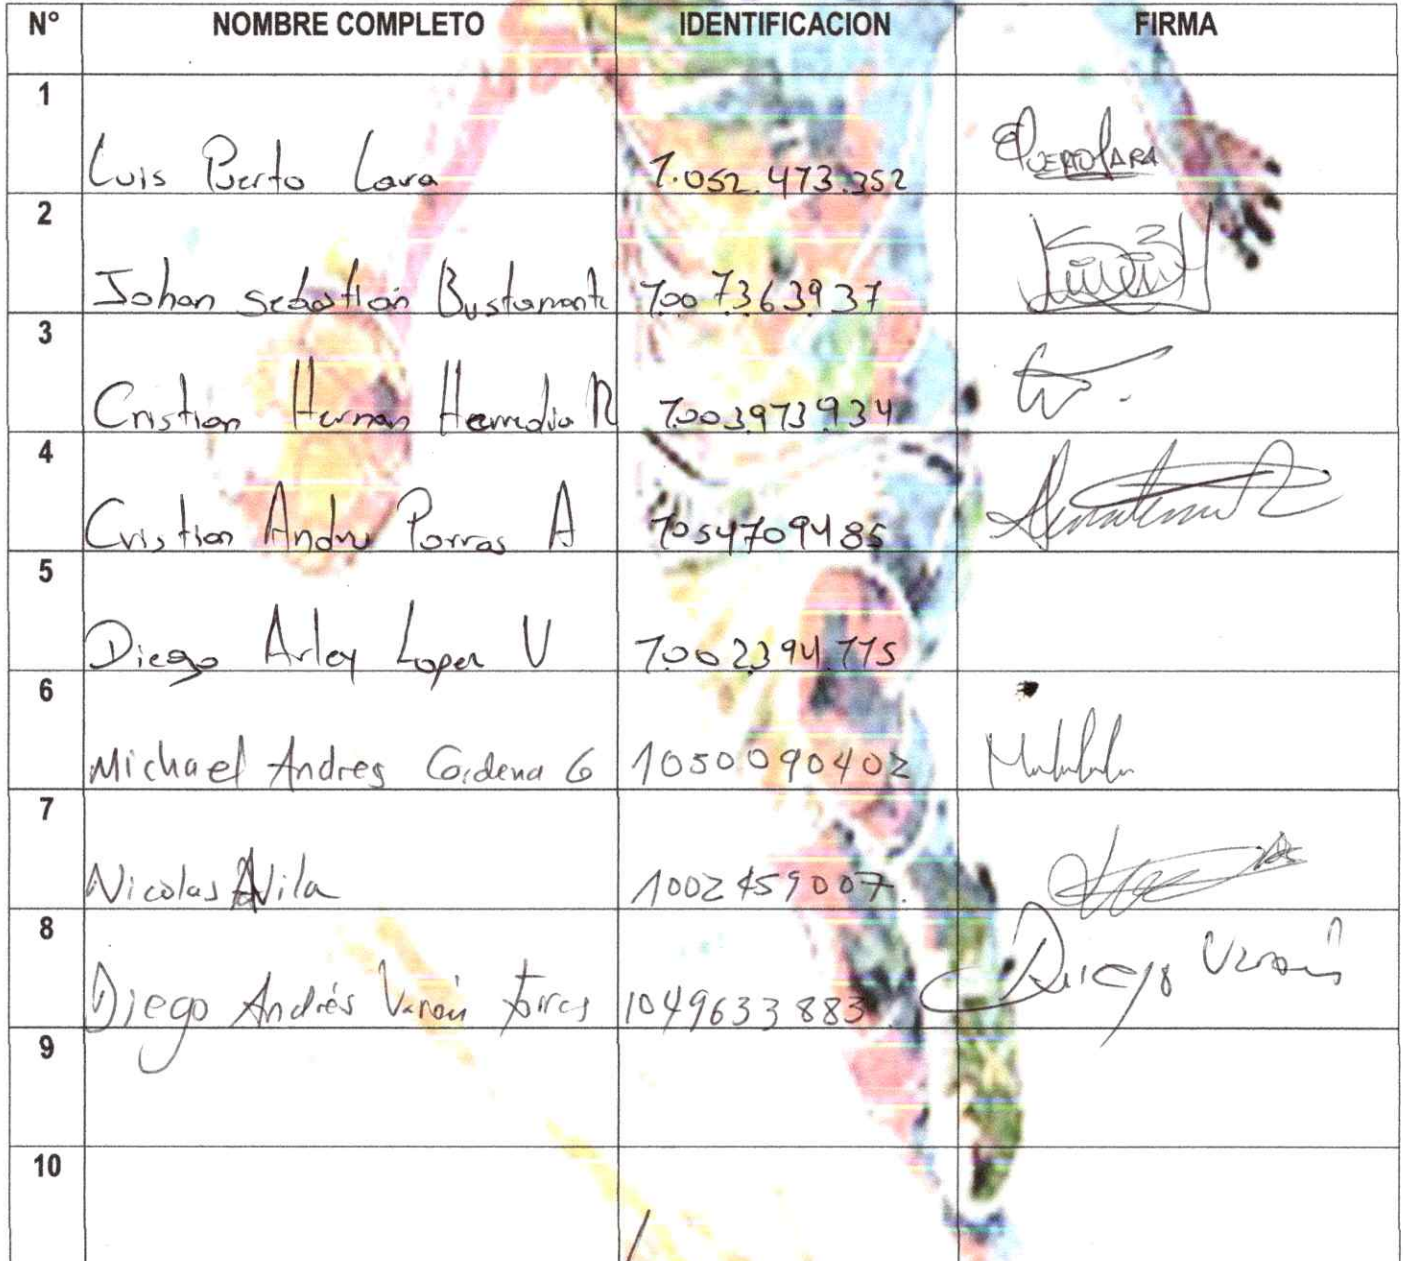 N° NOMBRE COMPLETO IDENTIFICACION FIRMA
1
Luis Puerto Lara 1.052.473.352 PUERTO LARA
2
Johan Sebastian Bustamante 1007363937
3
Cristian Hernan Heredia R 1.003973934
4
Cristian Andre Porras A 1054709485
5
Diego Arley Lopez V 1.002394.115
6
Michael Andres Cardena G 1050090402
7
Nicolas Avila 1002459007
8
Diego Andrés Varón Torres 1049633883 Diego Varón
9
10